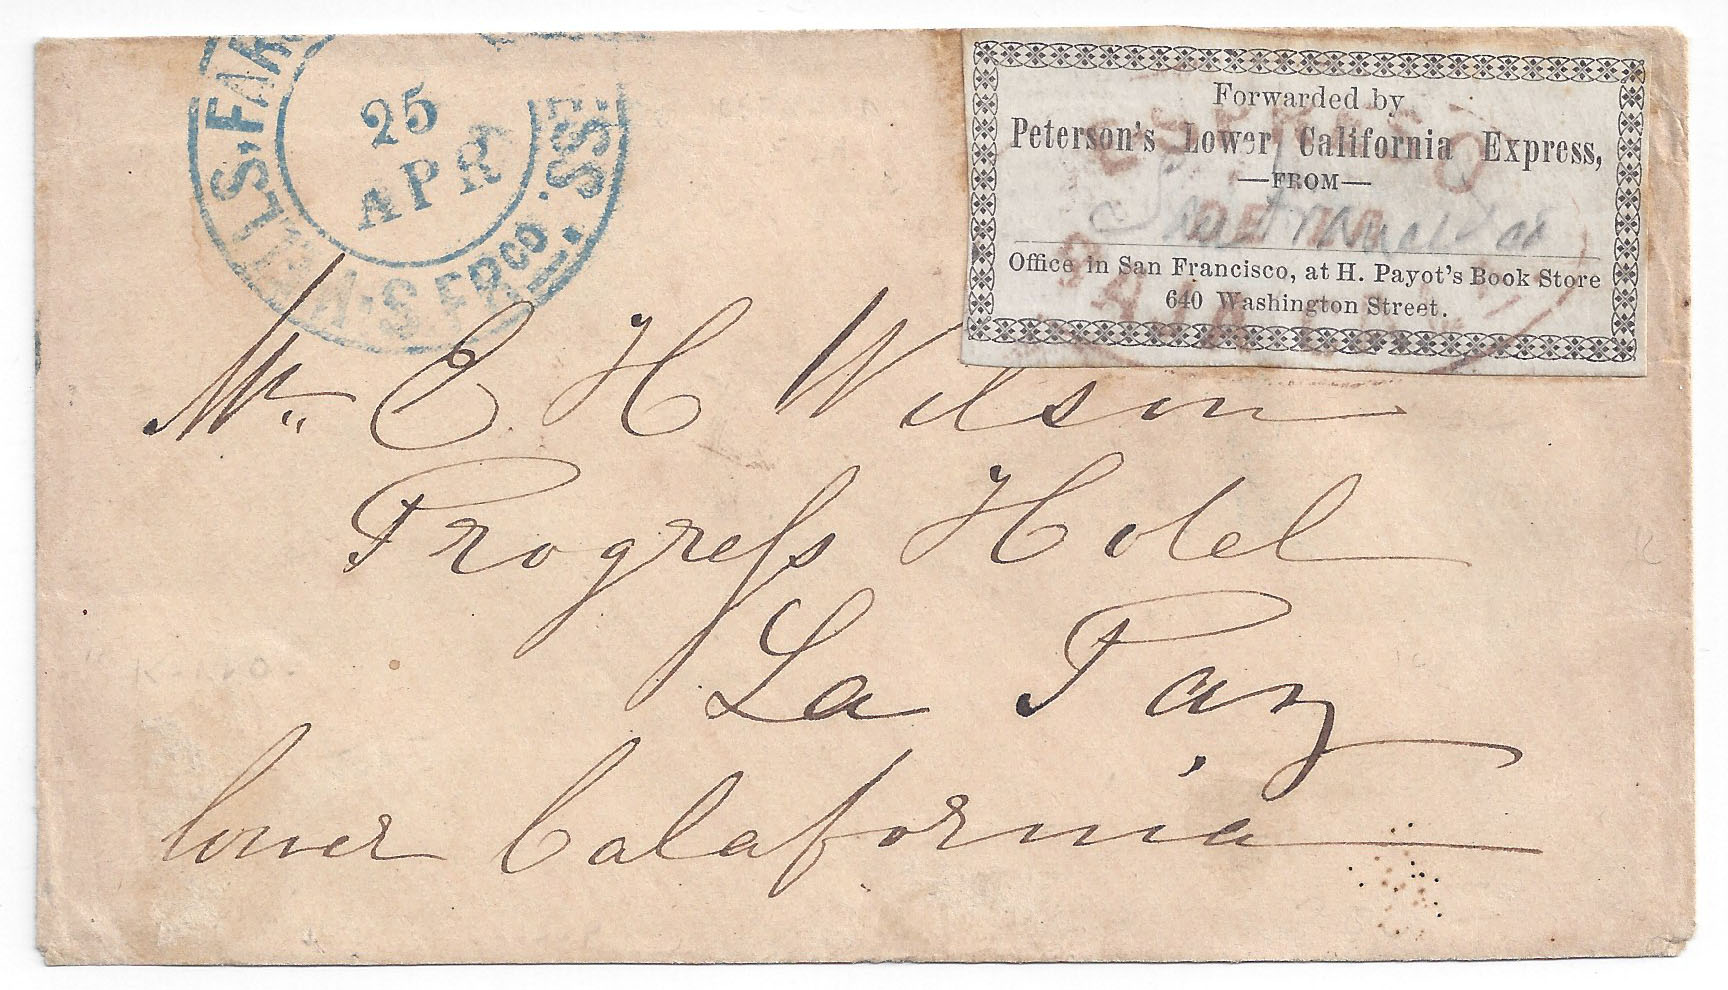 WELLS, FAR
25
APR
SS.
S. FRCO.
Forwarded by
Peterson's Lower California Express,
—FROM—
Office in San Francisco, at H. Payot's Book Store
640 Washington Street.
Mr. E H Wilson
Progress Hotel
La Paz,
lower Calafornia